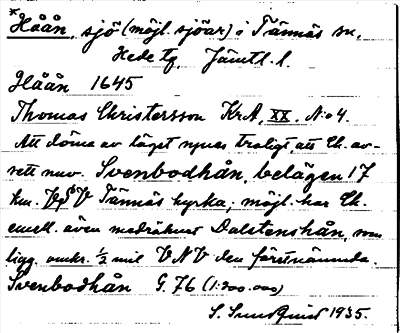 *Håån, sjö (möjl. sjöar) i Tännäs sn,
Hede tg, Jämtl. l.
Håån 1645
Thomas Christersson KrA, XX. N:o 4.
Att döma av läget synes troligt, att Ch. av-
sett nuv. Svenbodhån, belägen 17
km. VgSV Tännäs kyrka; möjl. har Ch.
emell. även medräknat Dalstenshån, som
ligg. omkr. ½ mil VNV den förstnämnda.
Svenbodhån G. 76 (1:200.000)
S. Sundqvist 1935.